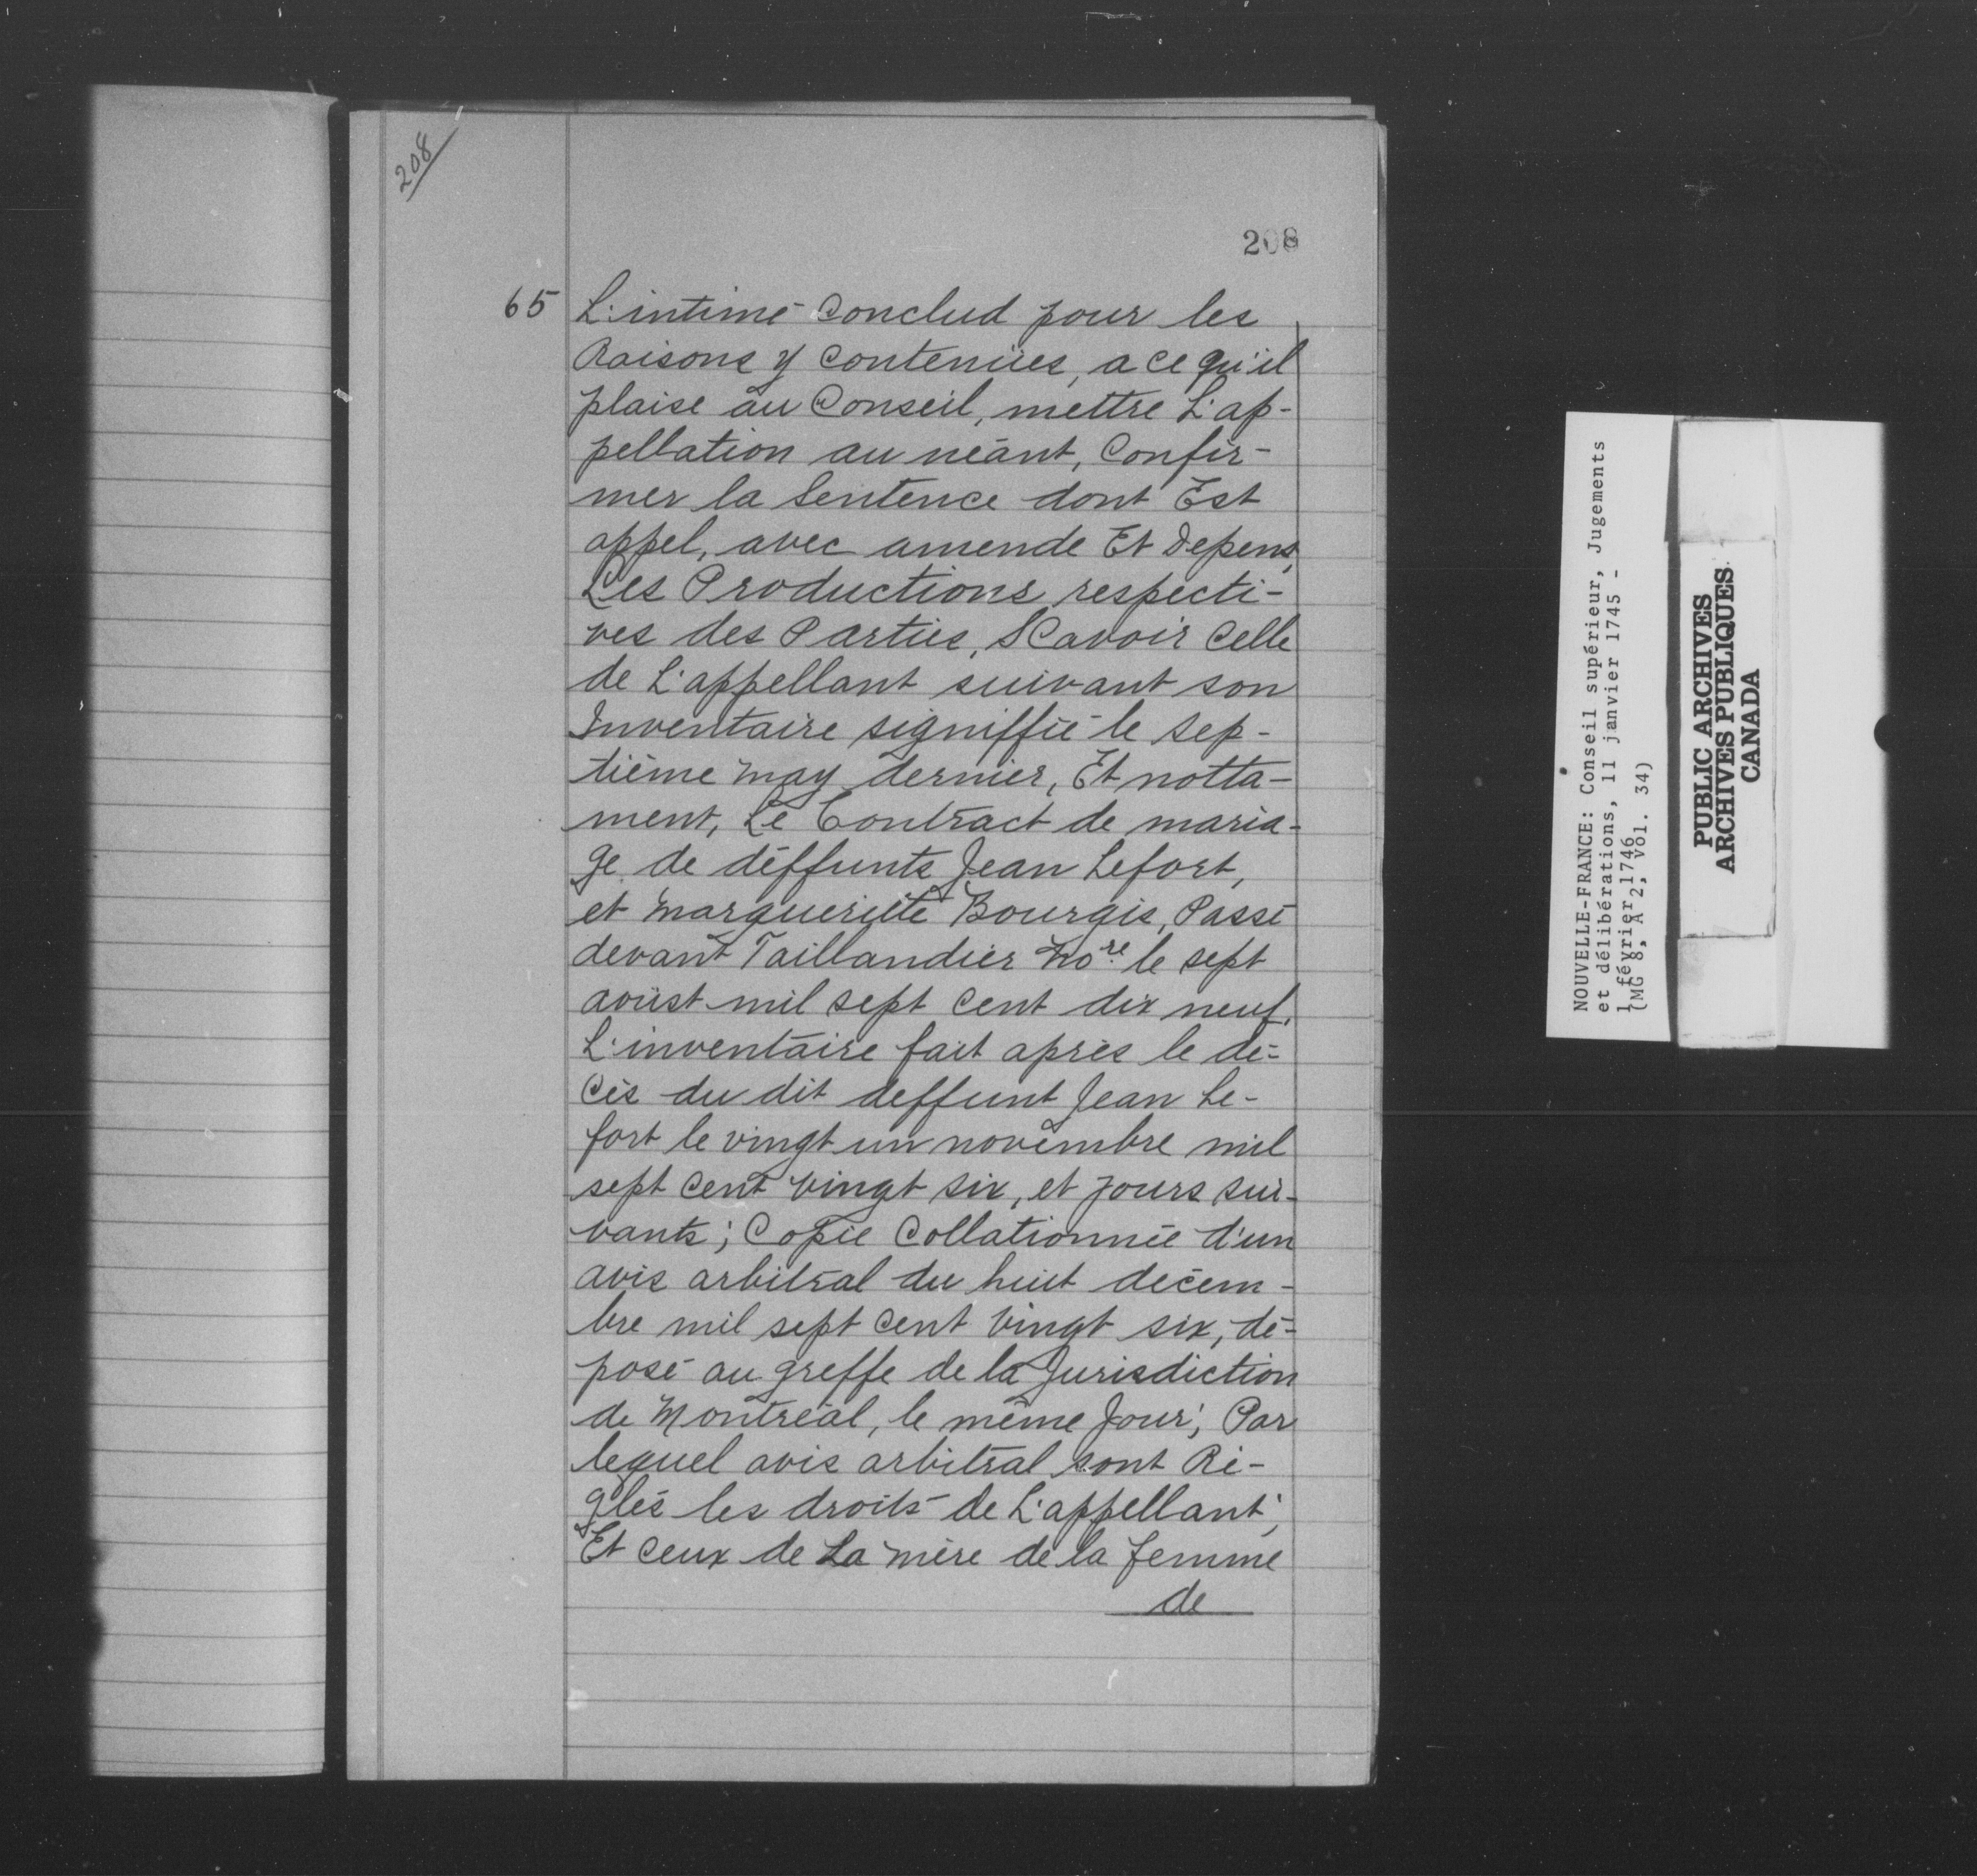 208
208
65 L'intimé Conclud pour les
Raisons y Contenües, a ce qu'il
plaise au Conseil, mettre L'ap-
pellation au néant, Confir-
mer la Sentence dont Est
appel, avec amende Et Depens,
Les Productions respecti-
ves des Parties, Scavoir Celle
de L'appellant suivant son
Inventaire signiffié le sep-
tième may dernier, Et notta-
ment, Le Contract de maria-
ge de deffunts Jean Lefort,
et marguerite Bourgis, Passé
devant Taillandier No.re le sept
aoüst mil sept Cent dix neuf.
L'inventaire fait après le dé-
cès du dit deffunt Jean Le-
fort le vingt un novembre mil
sept Cent vingt six, et jours sui-
vants; Copie Collationnée d'un
avis arbitral du huit décem-
bre mil sept Cent vingt six, dé-
posé au greffe de la Jurisdiction
de Montréal, le même Jour; Par
lequel avis arbitral sont Ré-
glés les droits de L'appellant;
Et ceux de La mère de la femme
de
NOUVELLE-FRANCE: Conseil supérieur, Jugements
et délibérations, 11 janvier 1745 -
1 février 1746
(MG 8, A 2, vol. 34)
PUBLIC ARCHIVES
ARCHIVES PUBLIQUES
CANADA